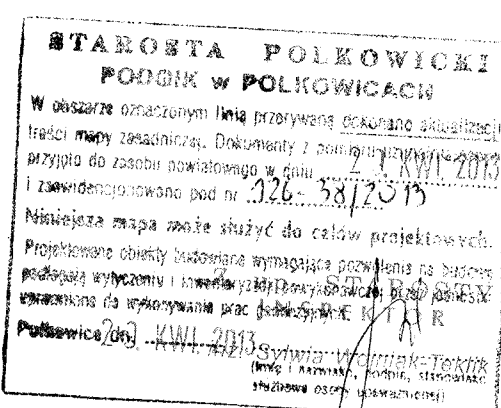 STAROSTA POLKOWICKI
PODGIK w POLKOWICACH
W obszarze oznaczonym linią przerywaną dokonano aktualizacji
treści mapy zasadniczej. Dokumenty z pomiaru
przyjęto do zasobu powiatowego w dniu 2 3. KWI. 2013
i zaewidencjonowano pod nr 126-38/2013
Niniejsza mapa może służyć do celów projektowych.
Projektowane obiekty budowlane wymagające pozwolenia na budowę
podlegają wytyczeniu i inwentaryzacji powykonawczej przez jednostki
uprawnione do wykonywania prac geodezyjnych.
Z up. STAROSTY
INSPEKTOR
Polkowice dn. 2 3. KWI. 2013
Sylwia Woźniak-Teklik
(imię i nazwisko, podpis, stanowisko
służbowe osoby upoważnionej)